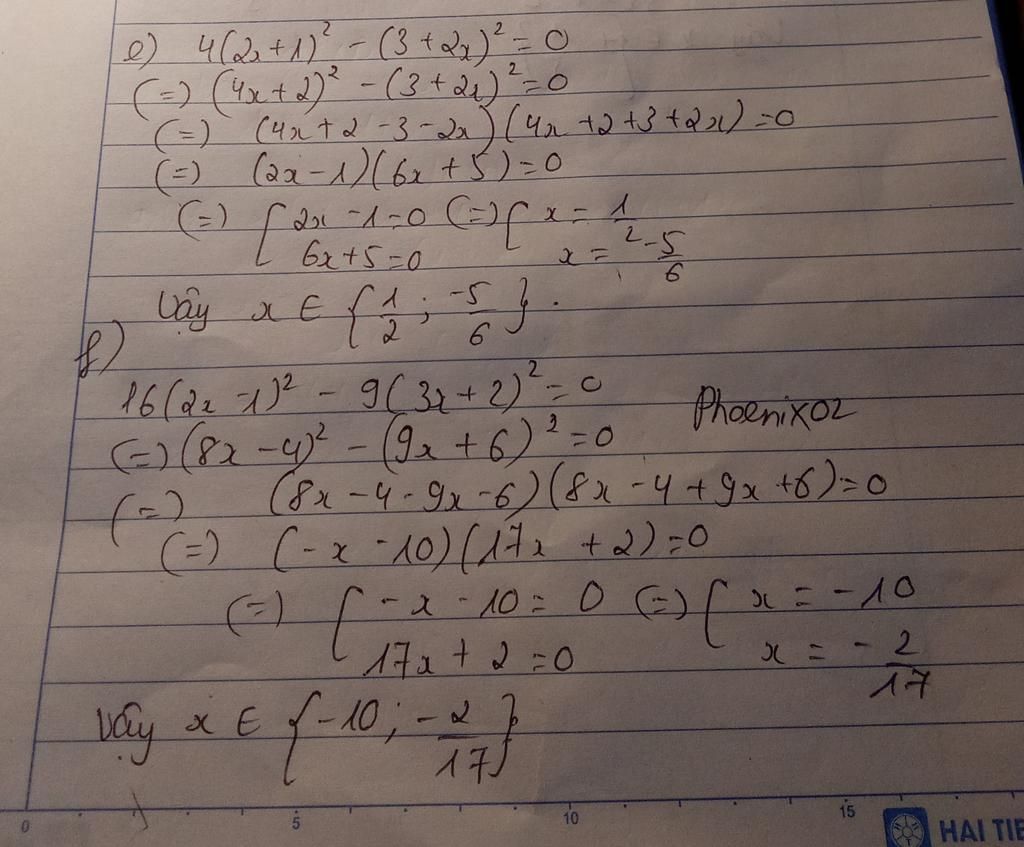 e) 4(2x+1)² - (3+2x)² = 0
(=) (4x+2)² - (3+2x)² = 0
(=) (4x+2-3-2x)(4x+2+3+2x) = 0
(=) (2x-1)(6x+5) = 0
(=) [ 2x-1=0 (=) [ x = 1/2
6x+5=0 x = -5/6
Vậy x ∈ {1/2 ; -5/6}.
f)
16(2x-1)² - 9(3x+2)² = 0
Phoenix02
(=) (8x-4)² - (9x+6)² = 0
(=) (8x-4-9x-6)(8x-4+9x+6) = 0
(=) (-x-10)(17x+2) = 0
(=) [ -x-10 = 0 (=) [ x = -10
17x+2 = 0 x = -2/17
Vậy x ∈ {-10; -2/17}
0 5 10 15
HẢI TIẾ